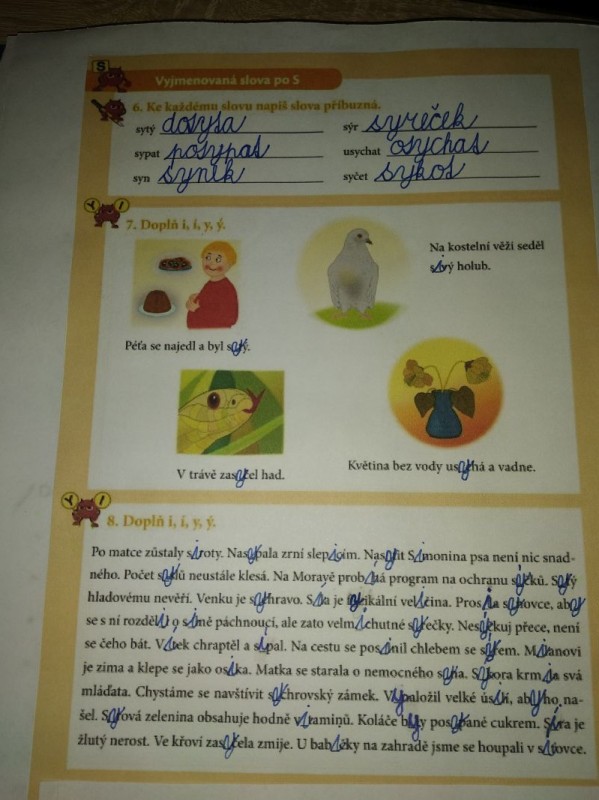 S
Vyjmenovaná slova po S
6. Ke každému slovu napiš slova příbuzná.
sytý dosyta sýr syreček
sypat posypat usychat osychat
syn synek syčet sykot
Y I
7. Doplň i, í, y, ý.
Na kostelní věži seděl
sivý holub.
Péťa se najedl a byl sytý.
V trávě zasyčel had.
Květina bez vody usychá a vadne.
Y I
8. Doplň i, í, y, ý.
Po matce zůstaly siroty. Nasypala zrní slepicím. Nasytit Simonina psa není nic snad-
ného. Počet syslů neustále klesá. Na Moravě probíhá program na ochranu syčků. Sytý
hladovému nevěří. Venku je sychravo. Síla je fyzikální veličina. Prosila syrovce, aby
se s ní rozdělil o silně páchnoucí, ale zato velmi chutné syrečky. Nesýčkuj přece, není
se čeho bát. Vítek chraptěl a sípal. Na cestu se posilnil chlebem se sýrem. Milanovi
je zima a klepe se jako osika. Matka se starala o nemocného syna. Sýkora krmila svá
mláďata. Chystáme se navštívit sychrovský zámek. Vynaložil velké úsilí, aby ho na-
šel. Syrová zelenina obsahuje hodně vitaminů. Koláče byly posypané cukrem. Síra je
žlutý nerost. Ve křoví zasyčela zmije. U babičky na zahradě jsme se houpali v síťovce.